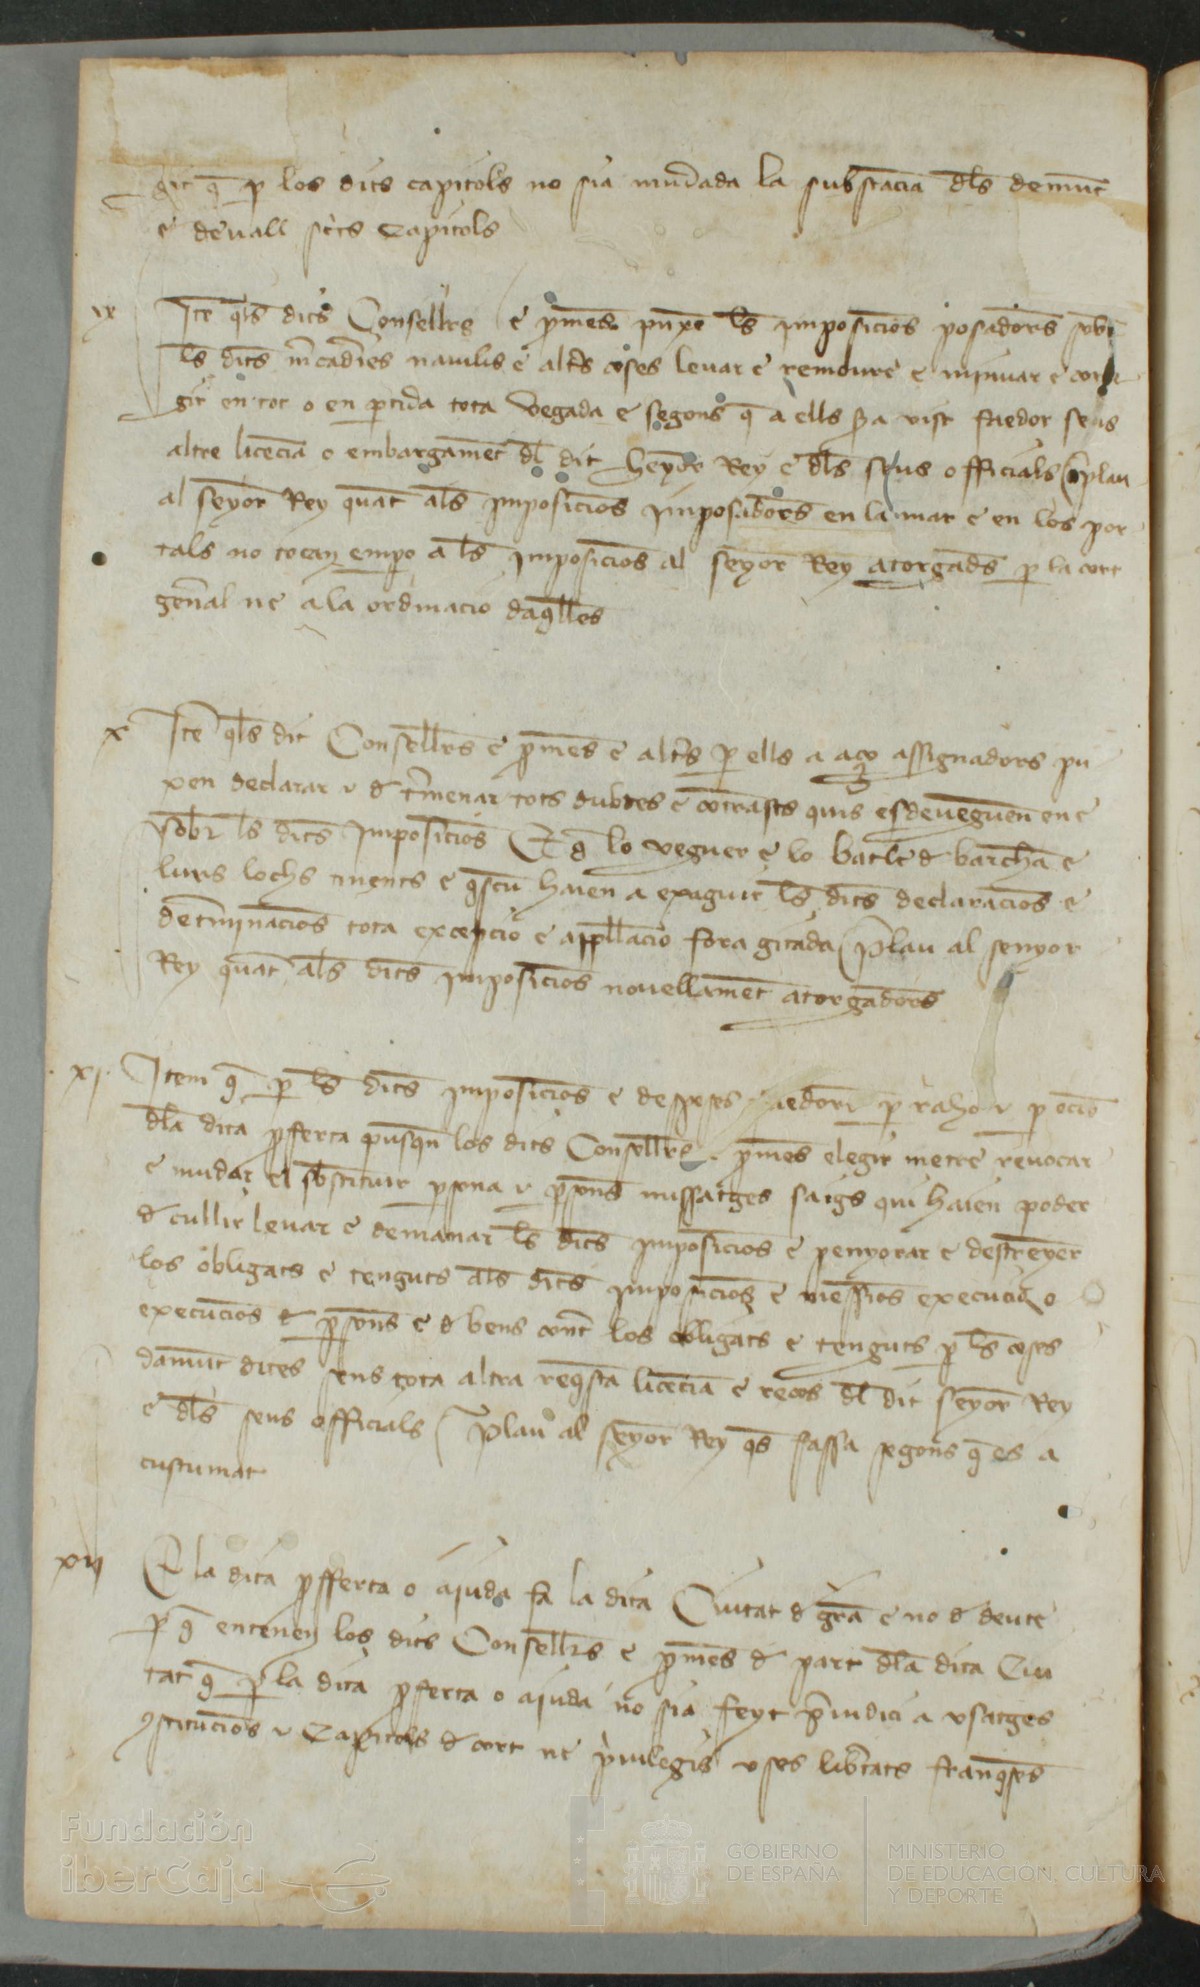 git q̄ p̱ los dits capitols no sia mudada la substancia dls̄ demūt
e deuall sc̄ts Capitols
ix Itē qls̄ dits Consellr̄s e p̄mēs puxē ls̄ imposicioñs posadors̄ sobr̄
ls̄ dits m̄cad̄ies nauilis e altr̄s coses leuar e remoure e minuar e corre
gir en tot o en p̱tida tota vegada e segons q̄ a ells s̄a vist faedor sens
altre licēcia o embargamēt dl̄ dit senyor Rey e dls̄ seus officials plau
al seyor Rey quāt als̄ imposicioñs imposadors̄ en la mar e en los por
tals no tocan empo a ls̄ Imposicioñs al seyor Rey atorgads̄ p̱ la cort
gen̄al ne a la ordinacio daq̄lles
x Itē qls̄ dit Consellr̄s e p̄mēs e altr̄s p̱ ells a aço assignadors pu
xen declarar e det̄menar tots dubtes e cōtrasts quis esdeueguen en e
sobr̄ ls̄ dits Imposicioñs E q̄ lo veguer e lo batle d barch̄a e
lurs lochs tinents e q̄scū haien a exaguir ls̄ dits declaracioñs e
det̄minacioñs tota excepcio e appllacio fora gitada Plau al senyor
Rey quāt als̄ dits imposicioñs nouellamēt atorgadors̄
xj Item q̄ p̱ ls̄ dits imposicioñs e despeses faedors̄ p̱ raho e p̱ ocio
dla dita p̱ferta pusqn̄ los dits Consellr̄s e p̄mēs elegir metre reuocar
e mudar e sbstituir p̱sona e p̱sons̄ missatges saigs qui haien poder
d cullir leuar e demanar ls̄ dits imposicioñs e penyorar e destreyer
los obligats e tenguts als̄ dits imposicioñs e messioñs execucio o
execucioñs d p̱sons̄ e d bens cont̄ los obligats e tenguts p̱ ls̄ coses
damūt dites sens tota altra req̄sta licēcia e recors dl̄ dit seyor Rey
e dls̄ seus officials Plau al seyor Rey qs̄ fassa segons q̄ es a
custumat
xij E la dita p̱fferta o aiuda fa la dita Ciutat d gr̄a e no d deute
p̱ q̄ entenen los dits Consellr̄s e p̄mēs d part dla dita Ciu
tat q̄ p̱ la dita p̱ferta o aiuda no sia feyt p̄iudici a vsatges
ꝯstitucioñs e Capitols d cort ne p̄uilegis vses lib̄tats franq̄ses
Fundación
iberCaja
GOBIERNO
DE ESPAÑA
MINISTERIO
DE EDUCACIÓN, CULTURA
Y DEPORTE